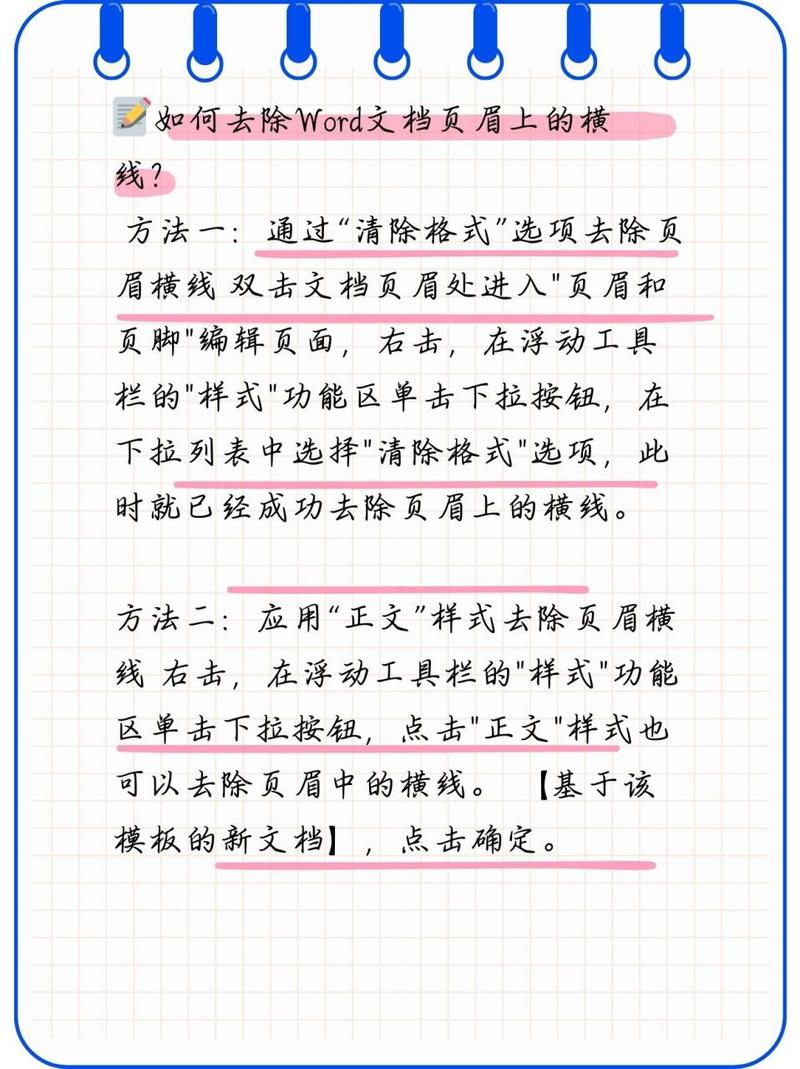 如何去除Word文档页眉上的横
线?
方法一：通过“清除格式”选项去除页
眉横线 双击文档页眉处进入"页眉和
页脚"编辑页面，右击，在浮动工具
栏的"样式"功能区单击下拉按钮，在
下拉列表中选择"清除格式"选项，此
时就已经成功去除页眉上的横线。
方法二：应用“正文”样式去除页眉横
线 右击，在浮动工具栏的"样式"功能
区单击下拉按钮，点击"正文"样式也
可以去除页眉中的横线。 【基于该
模板的新文档】，点击确定。